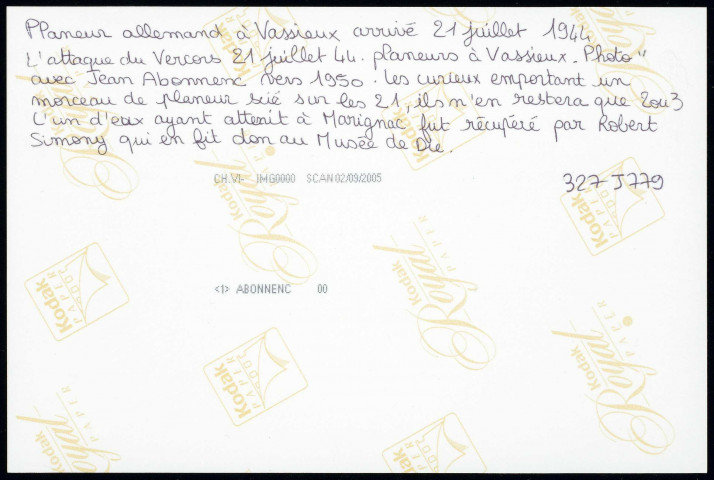 Planeur allemand à Vassieux arrivé 21 juillet 1944
L'attaque du Vercors 21 juillet 44. planeurs à Vassieux. Photo"
avec Jean Abonnenc vers 1950. Les curieux emportant un
morceau de planeur scié sur les 21, ils m'en restera que 2 ou 3
L'un d'eux ayant atterit à Marignac fut récupéré par Robert
Simony qui en fit don au Musée de Die.
CH.VI- IMG0000 SCAN 02/09/2005
327 J 779
<1> ABONNENC 00
Kodak PAPER
Royal
Kodak PAPER
Kodak Royal PAPER
Kodak PAPER
Kodak Royal PAPER
Kodak Royal PAPER
Kodak PAPER